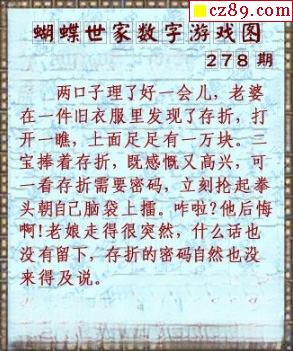 cz89.com
蝴蝶世家数字游戏图
278期
两口子理了好一会儿，老婆
在一件旧衣服里发现了存折，打
开一瞧，上面足足有一万块。三
宝捧着存折，既感慨又高兴，可
一看存折需要密码，立刻抡起拳
头朝自己脑袋上擂。咋啦?他后悔
啊!老娘走得很突然，什么话也
没有留下，存折的密码自然也没
来得及说。